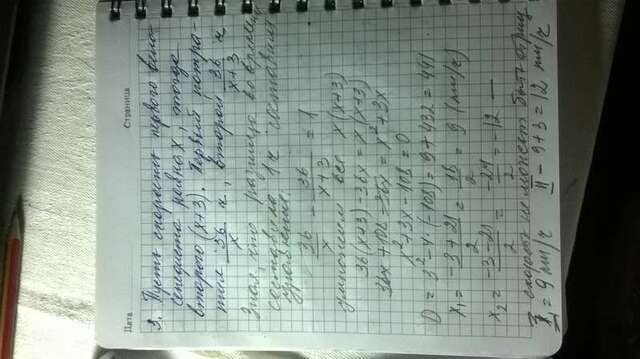 Дата
Страница
3. Пусть скорость первого вело-
сипедиста равна x, тогда
второго (x+3). Первый потра-
тил 36/x ч, второй 36/x+3 ч
Зная, что разница во времени
составила 1 ч составим
уравнение:
36/x - 36/x+3 = 1
умножим всё x(x+3)
36(x+3)-36x = x(x+3)
36x+108-36x = x²+3x
x²+3x-108=0
D = 3²-4·(-108) = 9+432 = 441
x₁ = -3+21/2 = 18/2 = 9 (км/ч)
x₂ = -3-21/2 = -24/2 = -12 —
скорость не может быть отриц
I = 9 км/ч II - 9+3 = 12 км/ч